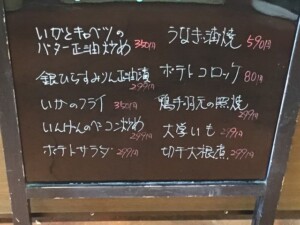 いかとキャベツの
バター正油炒め 350円
銀ひらすみりん正油漬
299円
いかのフライ 350円
いんげんのベーコン炒め
299円
ポテトサラダ 299円
うなぎ蒲焼 590円
ポテトコロッケ 80円
鶏手羽元の照焼
299円
大学いも 299円
切干大根煮 299円